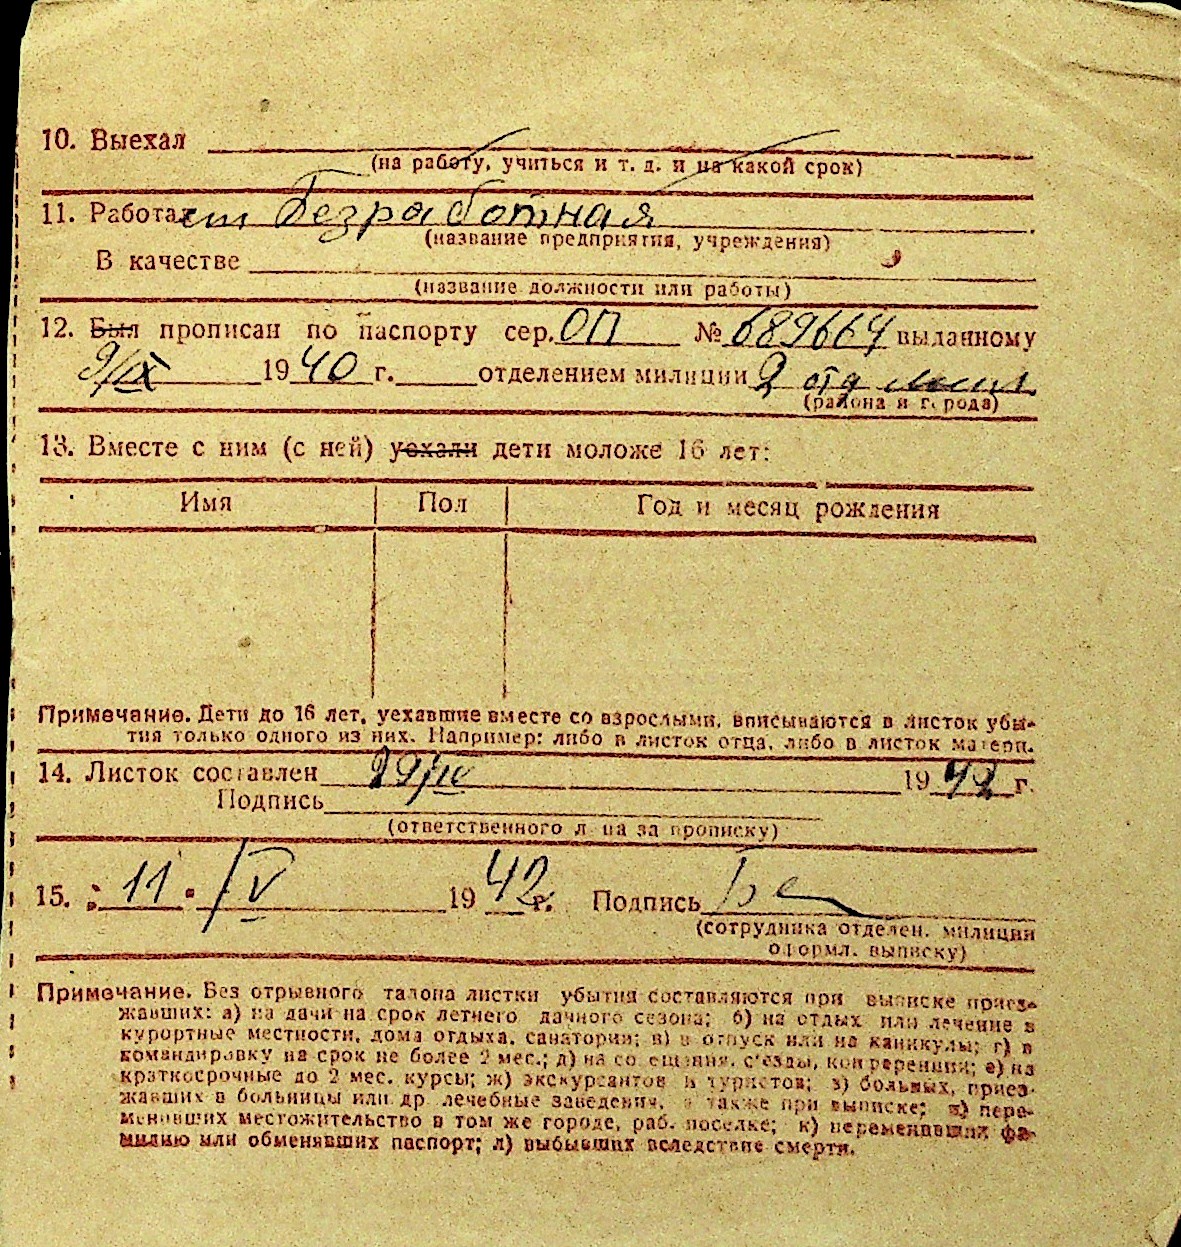 10. Выехал
(на работу, учиться и т. д. и на какой срок)
11. Работает Безработная
(название предприятия, учреждения)
В качестве
(название должности или работы)
12. Был прописан по паспорту сер. ОП № 689664 выданному
9/IX 1940 г. отделением милиции 2 отд мил.
(района и города)
13. Вместе с ним (с ней) уехали дети моложе 16 лет:
Имя Пол Год и месяц рождения
Примечание. Дети до 16 лет, уехавшие вместе со взрослыми, вписываются в листок убы-
тия только одного из них. Например: либо в листок отца, либо в листок матери.
14. Листок составлен 1942 г.
Подпись
(ответственного лица за прописку)
15. "11" IV 1942 г. Подпись
(сотрудника отделен. милиции
оформл. выписку)
Примечание. Без отрывного талона листки убытия составляются при выписке приез-
жавших: а) на дачи на срок летнего дачного сезона; б) на отдых или лечение в
курортные местности, дома отдыха, санатории; в) в отпуск или на каникулы; г) в
командировку на срок не более 2 мес.; д) на совещания, с'езды, конференции; е) на
краткосрочные до 2 мес. курсы; ж) экскурсантов и туристов; з) больных, приез-
жавших в больницы или др лечебные заведения, а также при выписке; и) пере-
менивших местожительство в том же городе, раб. поселке; к) переменивших фа-
милию или обменявших паспорт; л) выбывших вследствие смерти.